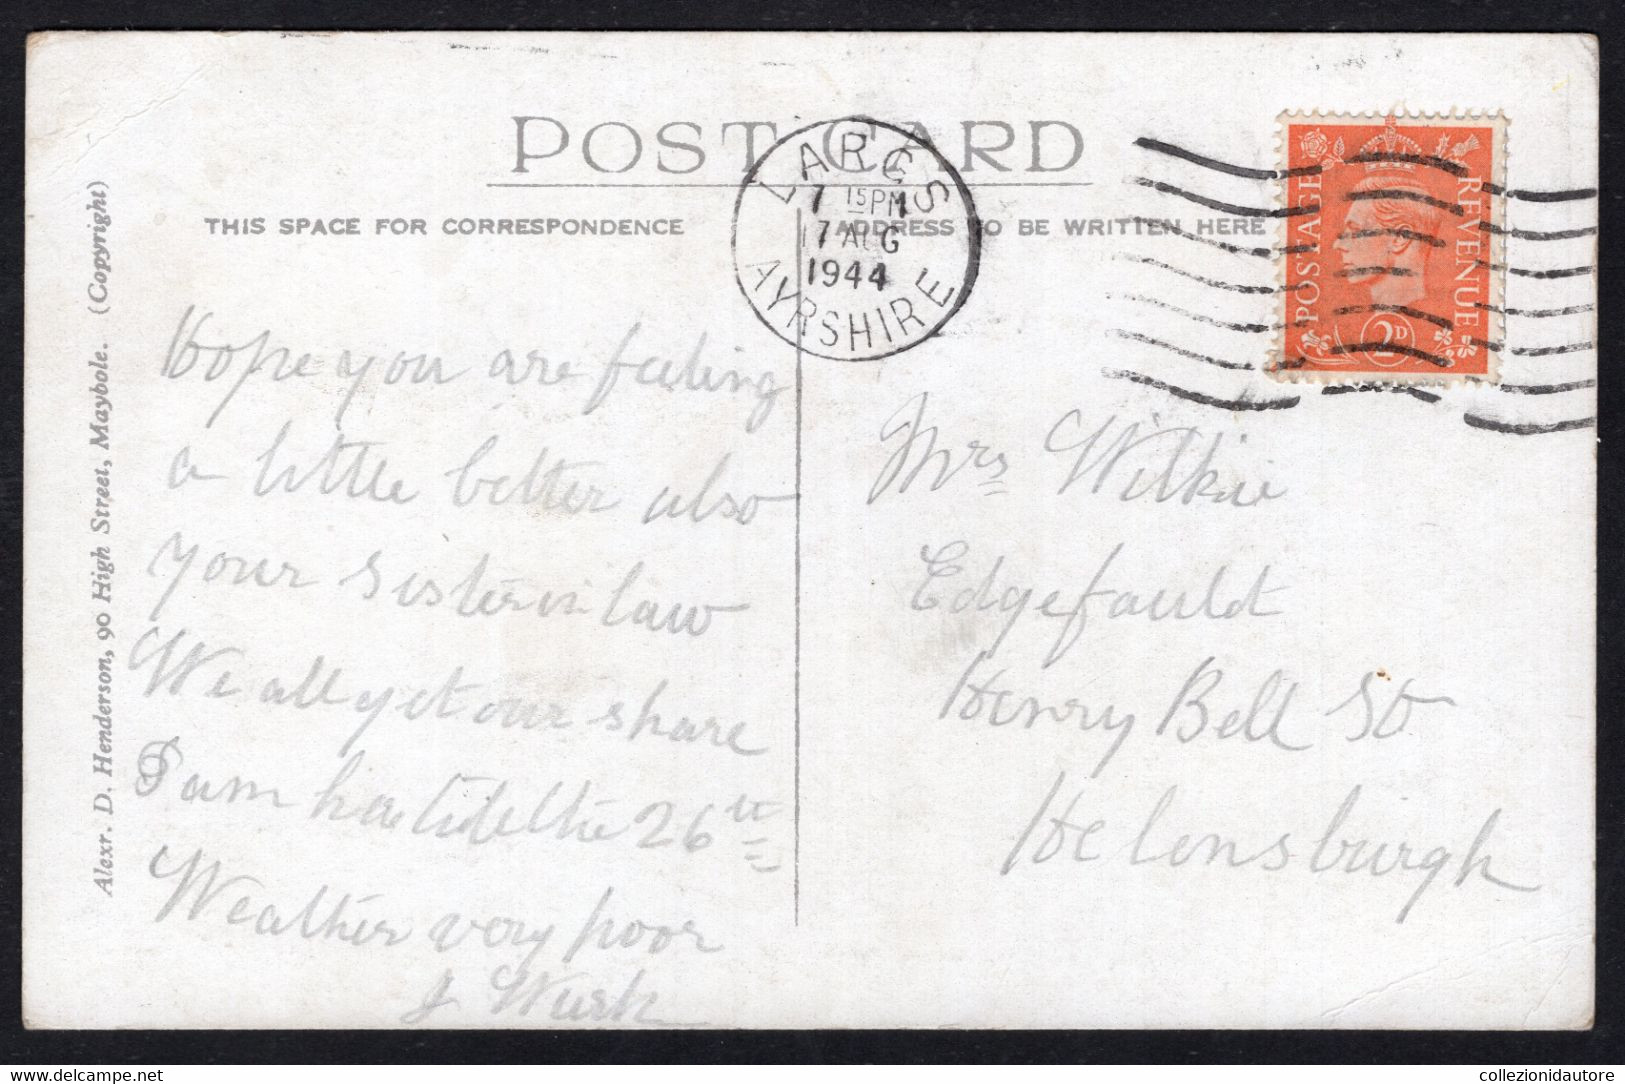 POST CARD
THIS SPACE FOR CORRESPONDENCE
ADDRESS TO BE WRITTEN HERE
LARGS
7 15PM
17 AUG
1944
AYRSHIRE
POSTAGE
REVENUE
2D
Alexr. D. Henderson, 90 High Street, Maybole. (Copyright)
Hope you are feeling
a little better also
your sister in law
We all get our share
I am here till the 26th
Weather very poor
J
Mrs Wilkie
Edgefauld
Henry Bell St
Helensburgh
www.delcampe.net
collezionidautore